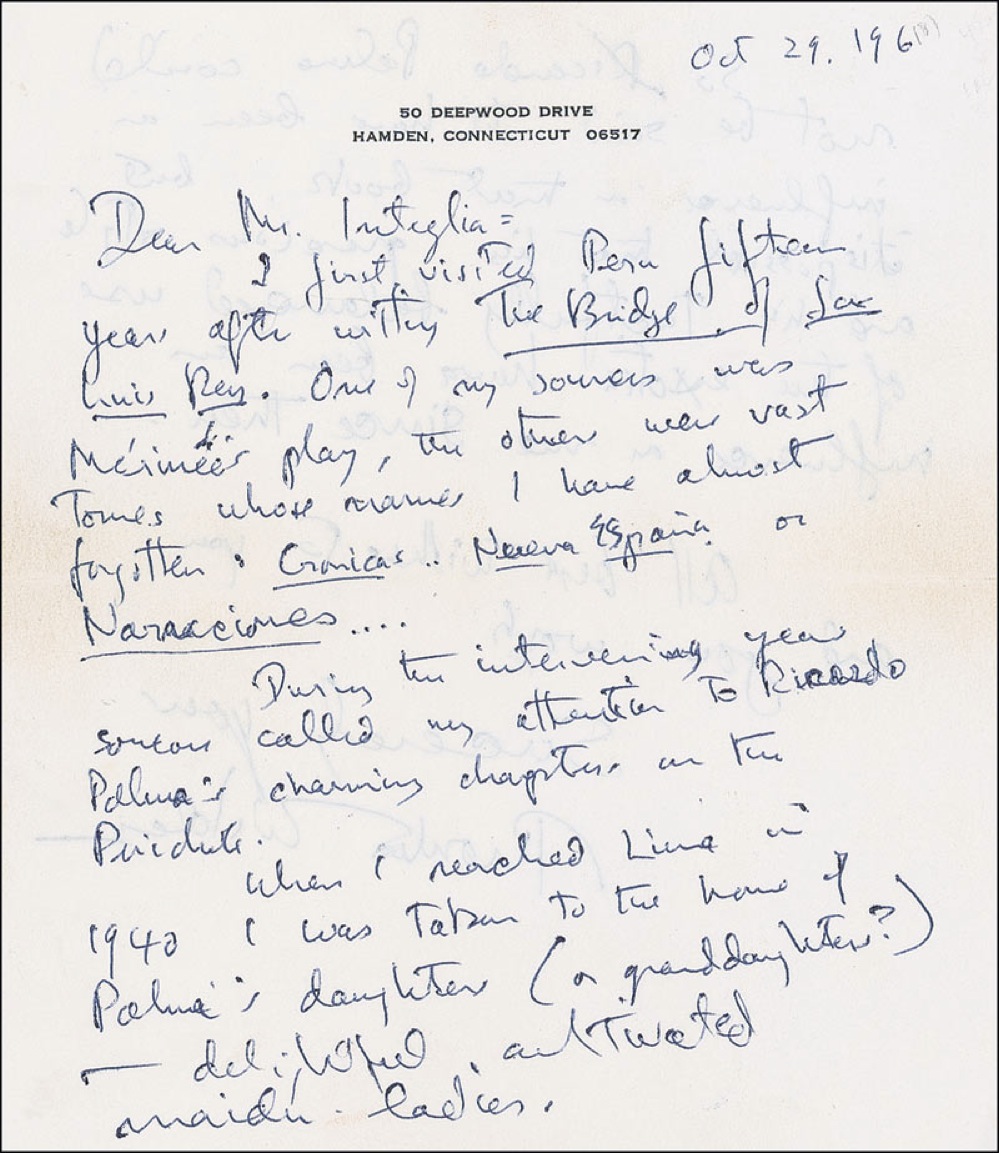 Oct 29. 196
50 DEEPWOOD DRIVE
HAMDEN, CONNECTICUT 06517
Dear Mr. Integlia =
I first visited Peru fifteen
years after writing The Bridge of San
Luis Rey. One of my sources was
Mérimée's play, the others were vast
Tomes whose names I have almost
forgotten: Cronicas.. Nueva España or
Narraciones....
During the intervening years
someone called my attention to Ricardo
Palma's charming chapters on the
Perichole.
When I reached Lima in
1940 I was Taken to the home of
Palma's daughters (or granddaughters?)
— delightful, cultivated
maiden ladies.